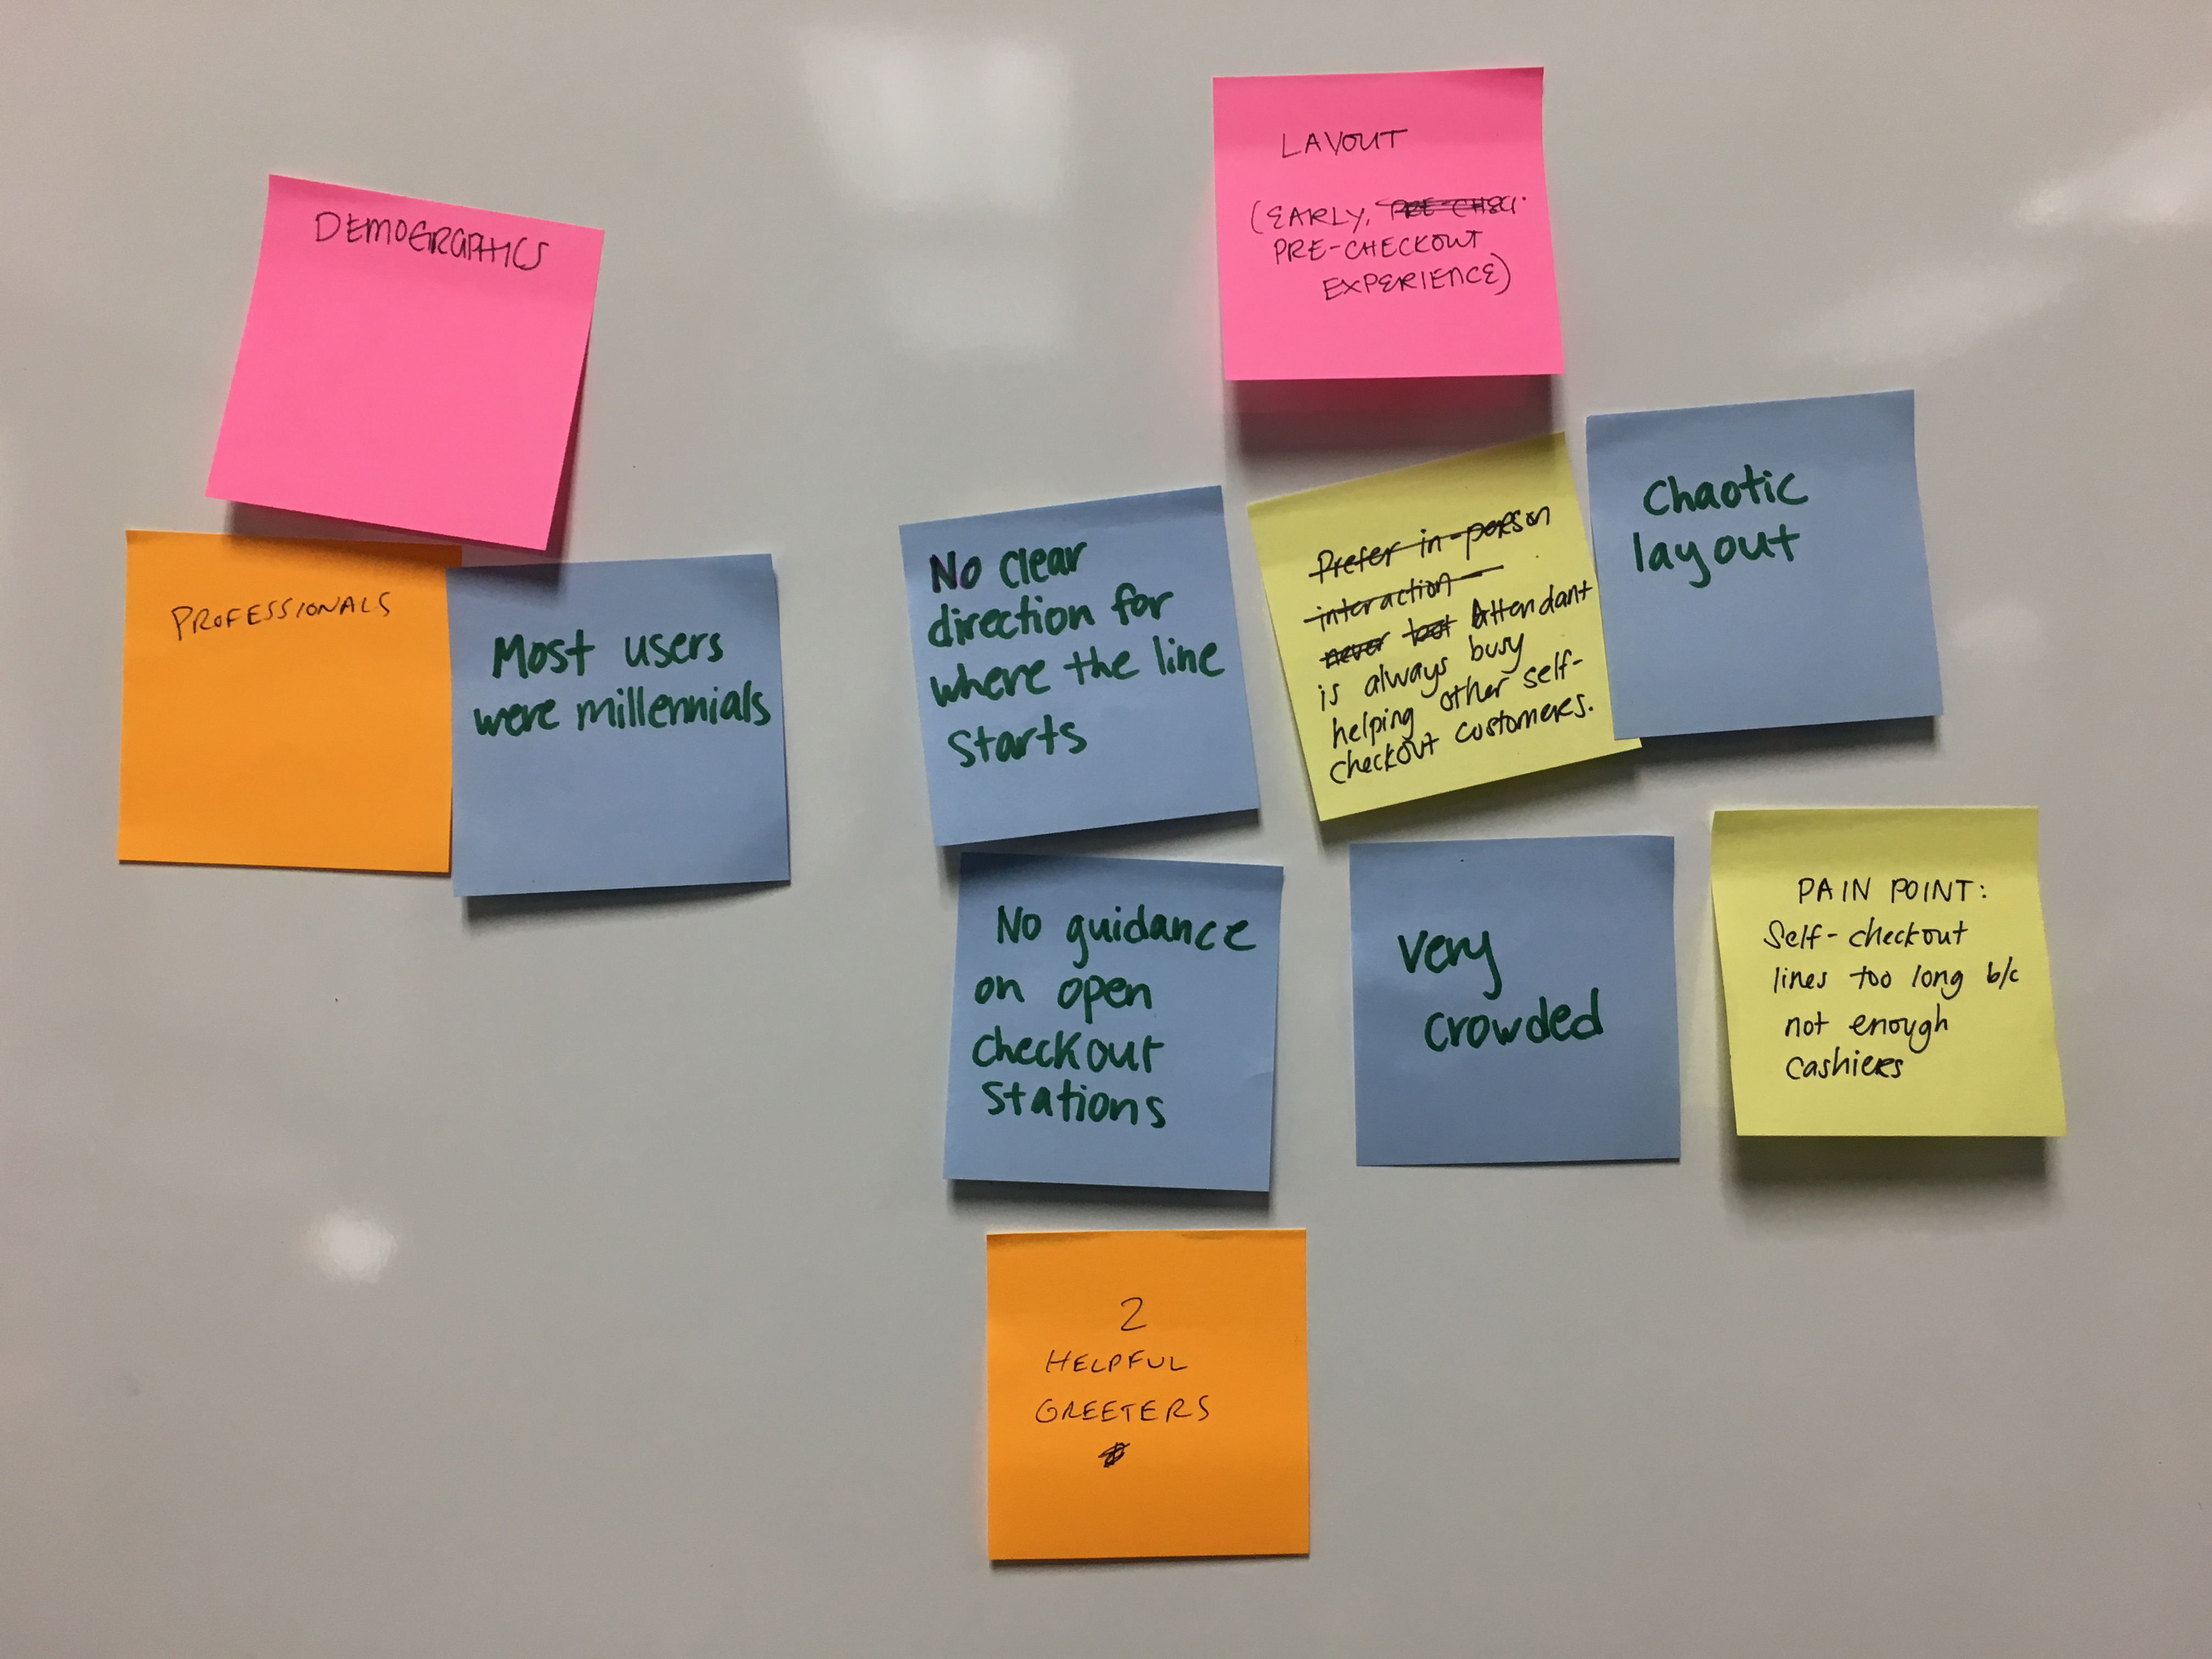 DEMOGRAPHICS
PROFESSIONALS
Most users
were millennials
LAYOUT
(EARLY, PRE-CHECK
PRE-CHECKOUT
EXPERIENCE)
No clear
direction for
where the line
starts
Prefer in-person
interaction -
never but Attendant
is always busy
helping other self-
checkout customers.
Chaotic
layout
No guidance
on open
checkout
stations
Very
crowded
PAIN POINT:
Self-checkout
lines too long b/c
not enough
cashiers
2
HELPFUL
GREETERS